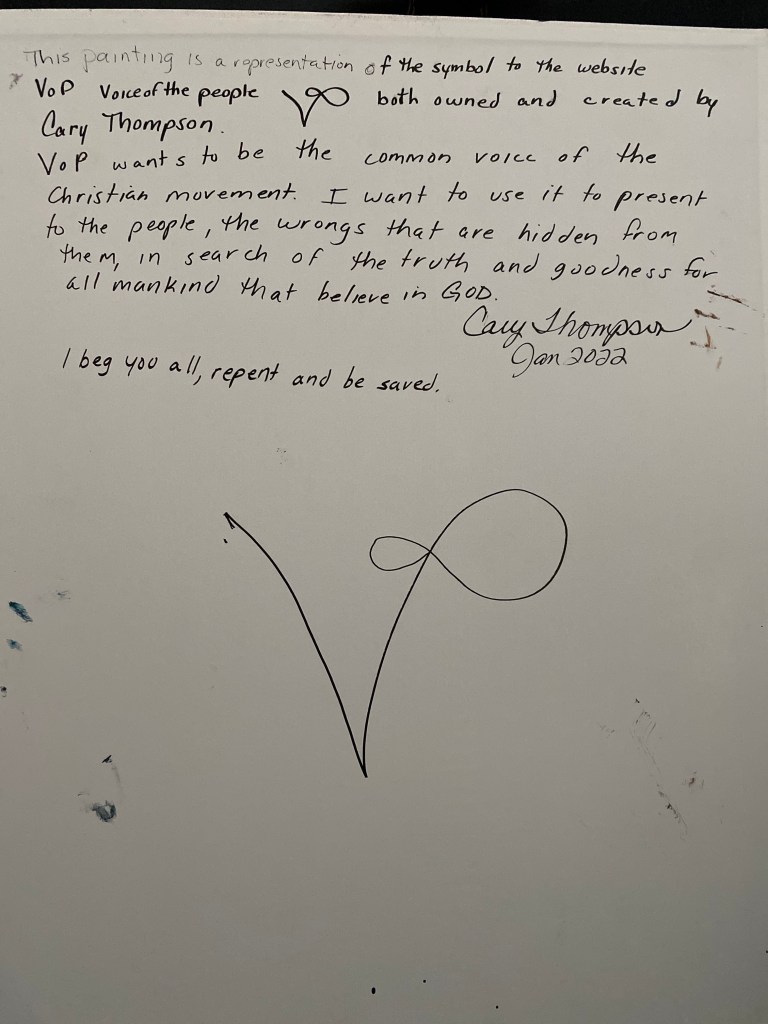 This painting is a representation of the symbol to the website
VoP Voice of the people both owned and created by
Cary Thompson.
VoP wants to be the common voice of the
Christian movement. I want to use it to present
to the people, the wrongs that are hidden from
them, in search of the truth and goodness for
all mankind that believe in GOD.
Cary Thompson
Jan 2022
I beg you all, repent and be saved.